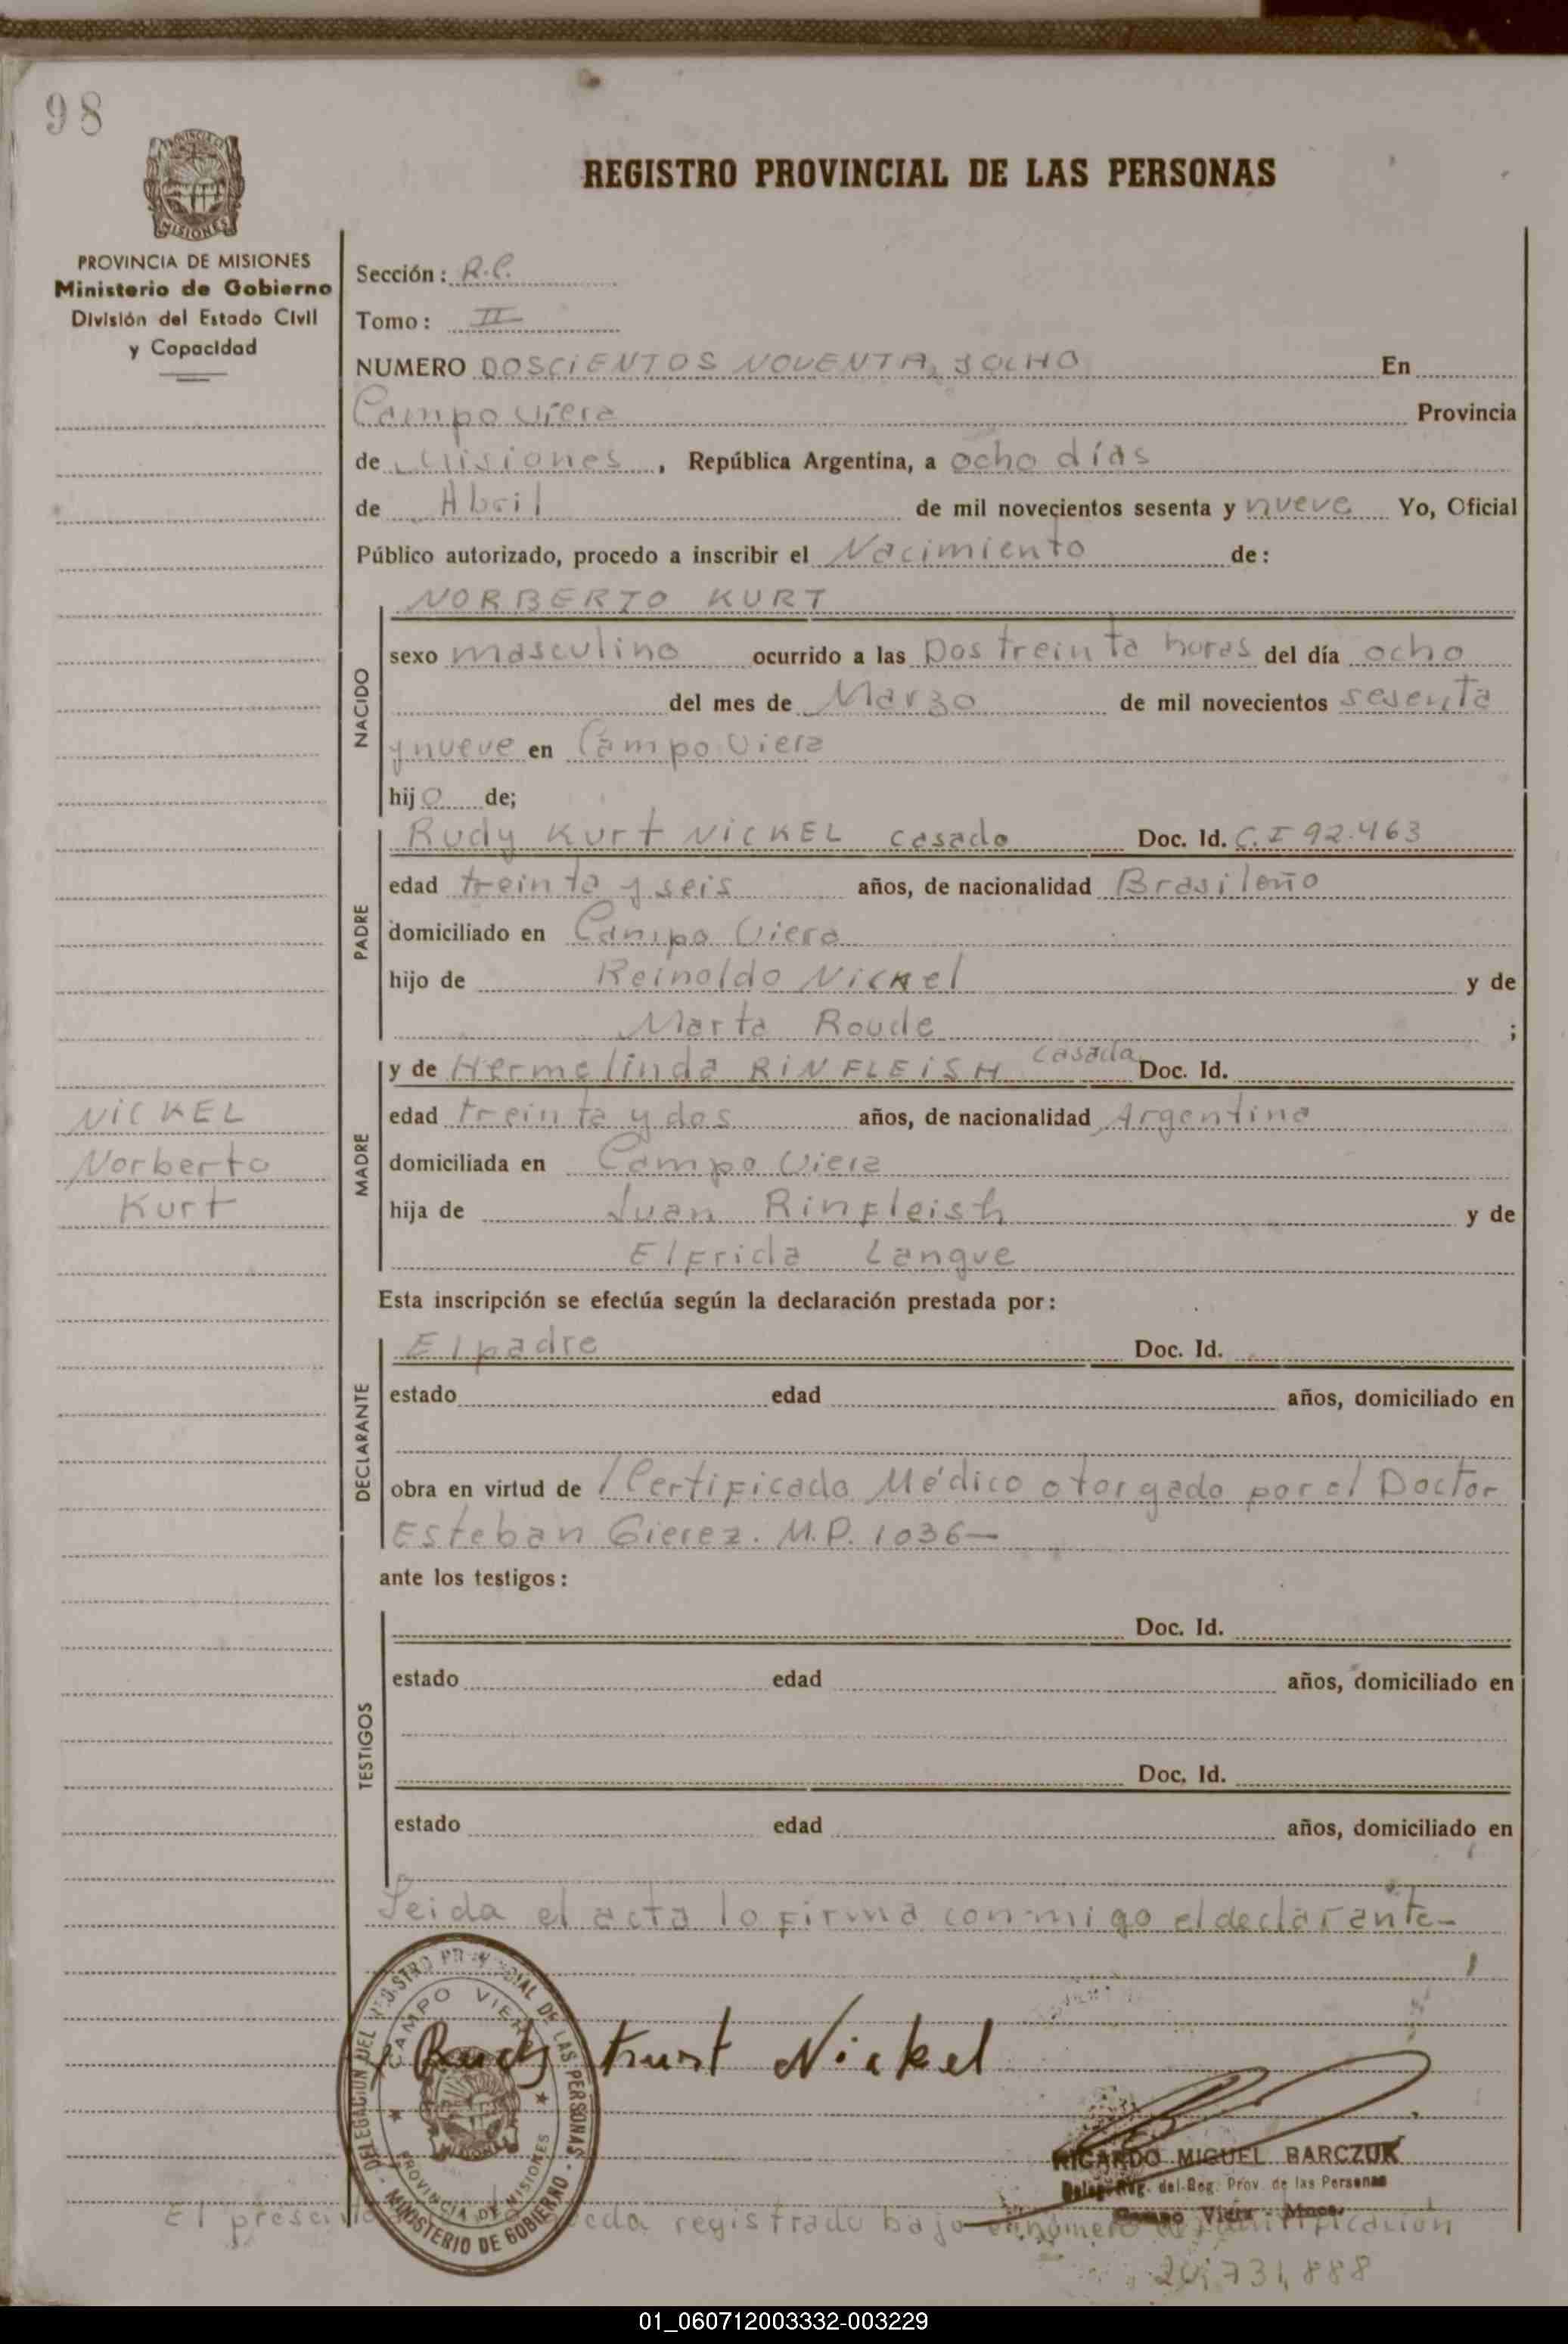 98
PROVINCIA DE MISIONES
Ministerio de Gobierno
División del Estado Civil
y Capacidad
REGISTRO PROVINCIAL DE LAS PERSONAS
Sección: R.C.
Tomo: II
NUMERO DOSCIENTOS NOVENTA Y OCHO En
Campo Viera Provincia
de Misiones, República Argentina, a ocho días
de Abril de mil novecientos sesenta y nueve Yo, Oficial
Público autorizado, procedo a inscribir el Nacimiento de:
NACIDO
NORBERTO KURT
sexo masculino ocurrido a las Dos treinta horas del día ocho
del mes de Marzo de mil novecientos sesenta
y nueve en Campo Viera
hijo de;
PADRE
Rudy Kurt NICKEL casado Doc. Id. C.I 92.463
edad treinta y seis años, de nacionalidad Brasileño
domiciliado en Campo Viera
hijo de Reinoldo Nickel y de
Marta Roude ;
MADRE
y de Hermelinda RINFLEISH casada Doc. Id.
edad treinta y dos años, de nacionalidad Argentina
domiciliada en Campo Viera
hija de Juan Rinfleish y de
Elfrida Langue
NICKEL
Norberto
Kurt
Esta inscripción se efectúa según la declaración prestada por:
DECLARANTE
El padre Doc. Id.
estado edad años, domiciliado en
obra en virtud de Certificado Médico otorgado por el Doctor
Esteban Gierez. M.P. 1036—
ante los testigos:
TESTIGOS
Doc. Id.
estado edad años, domiciliado en
Doc. Id.
estado edad años, domiciliado en
Leida el acta lo firma conmigo el declarante-
DELEGACION DEL REGISTRO PROVINCIAL DE LAS PERSONAS
CAMPO VIERA
PROVINCIA DE MISIONES
MINISTERIO DE GOBIERNO
Rudy Kurt Nickel
RICARDO MIGUEL BARCZUK
Deleg. Reg. del Reg. Prov. de las Personas
Campo Viera - Mnes.
El registrado bajo número identificación
20,731,888
01_060712003332-003229